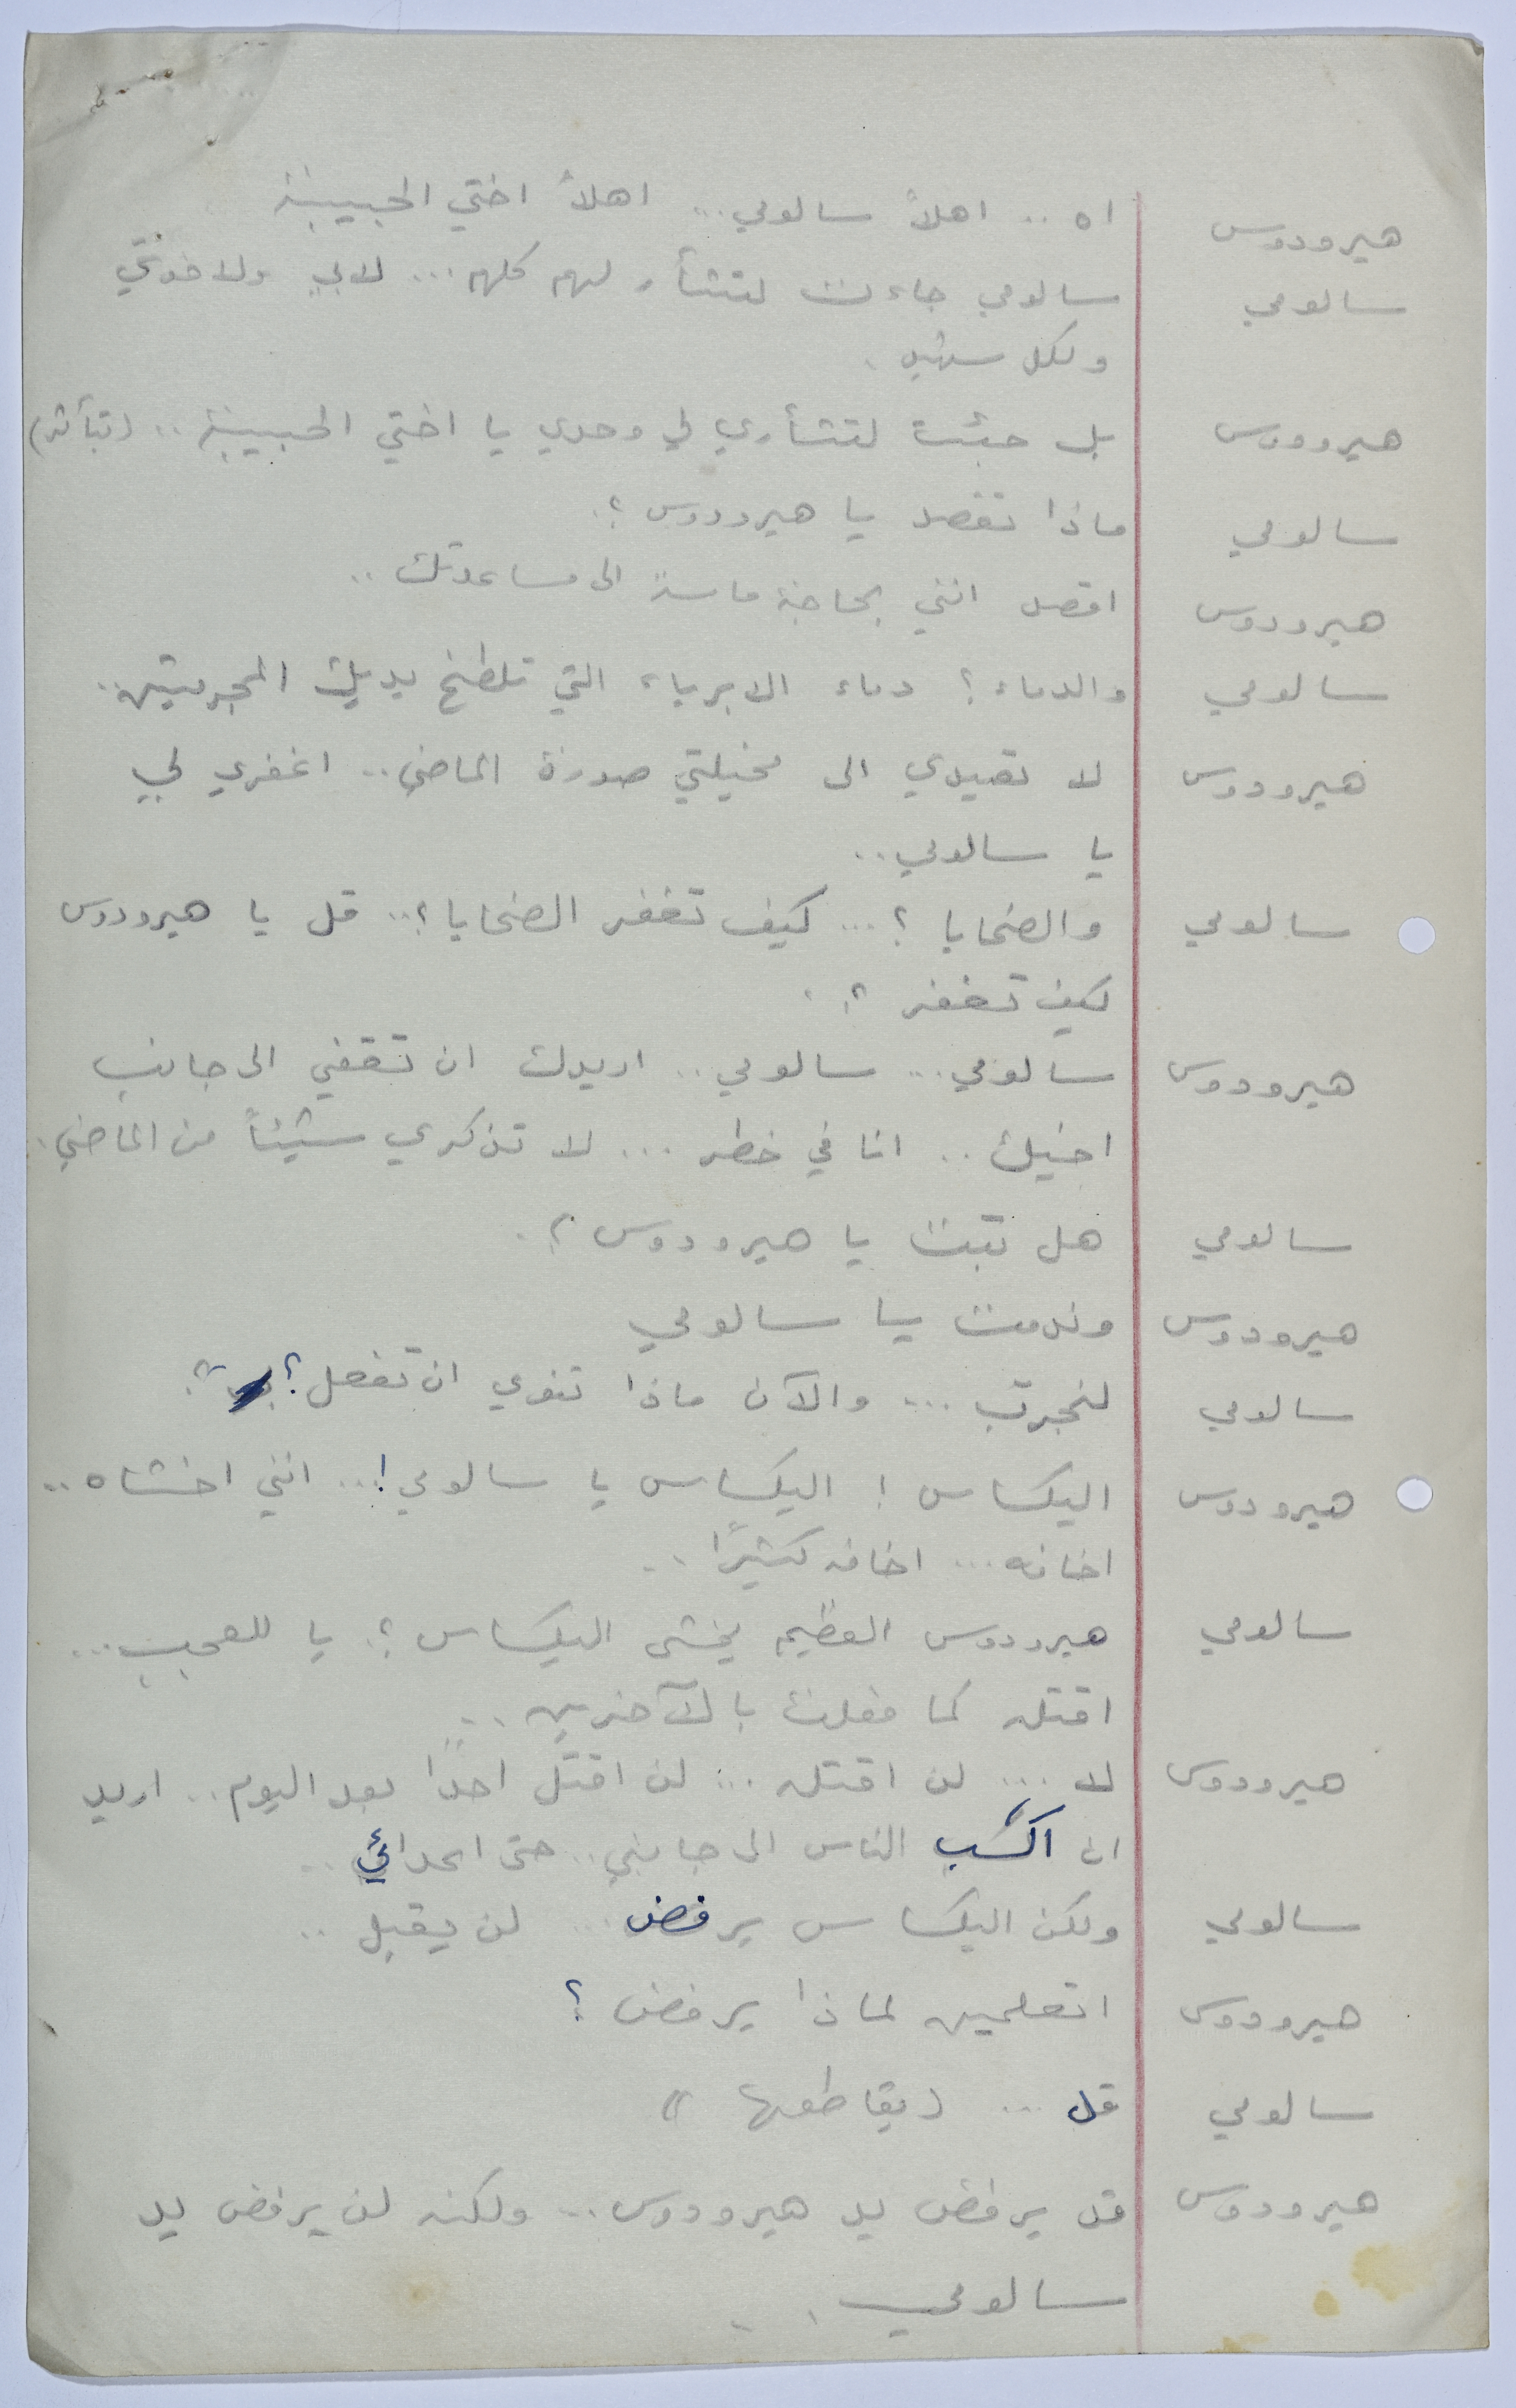 هيرودوس اه .. اهلاً سالومي... اهلاً اختي الحبيبة
سالومي سالومي جاءت لتثأر لهم كلهم ... لابي ولاخوتي
ولكل شهيد .
هيرودوس بل جئت لتثأري لي وحدي يا اختي الحبيبة .. (بتأثر)
سالومي ماذا تقصد يا هيرودوس ؟.
هيرودوس اقصد انني بحاجة ماسة الى مساعدتك ..
سالومي والدماء ؟ دماء الابرياء التي تلطخ يديك المجرمتين..
هيرودوس لا تعيدي الى مخيلتي صورة الماضي .. اغفري لي
يا سالومي ..
سالومي والضحايا ؟ ... كيف تغفر الضحايا ؟.. قل يا هيرودوس
كيف تغفر ؟.
هيرودوس سالومي ... سالومي .. اريدك ان تقفي الى جانب
اخيك .. انا في خطر ... لا تذكري شيئاً من الماضي .
سالومي هل تبت يا هيرودوس ؟.
هيرودوس وندمت يا سالومي
سالومي لنجرب ... والآن ماذا تنوي ان تفعل ؟
هيرودوس اليكساس ! اليكساس يا سالومي !... انني اخشاه ..
اخافه ... اخافه كثيرًا ..
سالومي هيرودوس العظيم يخشى اليكساس ؟. يا للعجب ...
اقتله كما فعلت بالآخرين ..
هيرودوس لا ... لن اقتله ... لن اقتل احدًا بعد اليوم .. اريد
ان اكسب الناس الى جانبي .. حتى اعدائي ..
سالومي ولكن اليكساس يرفض ... لن يقبل ..
هيرودوس اتعلمين لماذا يرفض ؟
سالومي قل ... (يقاطعها)
هيرودوس قد يرفض يد هيرودوس ... ولكنه لن يرفض يد
سالومي ..